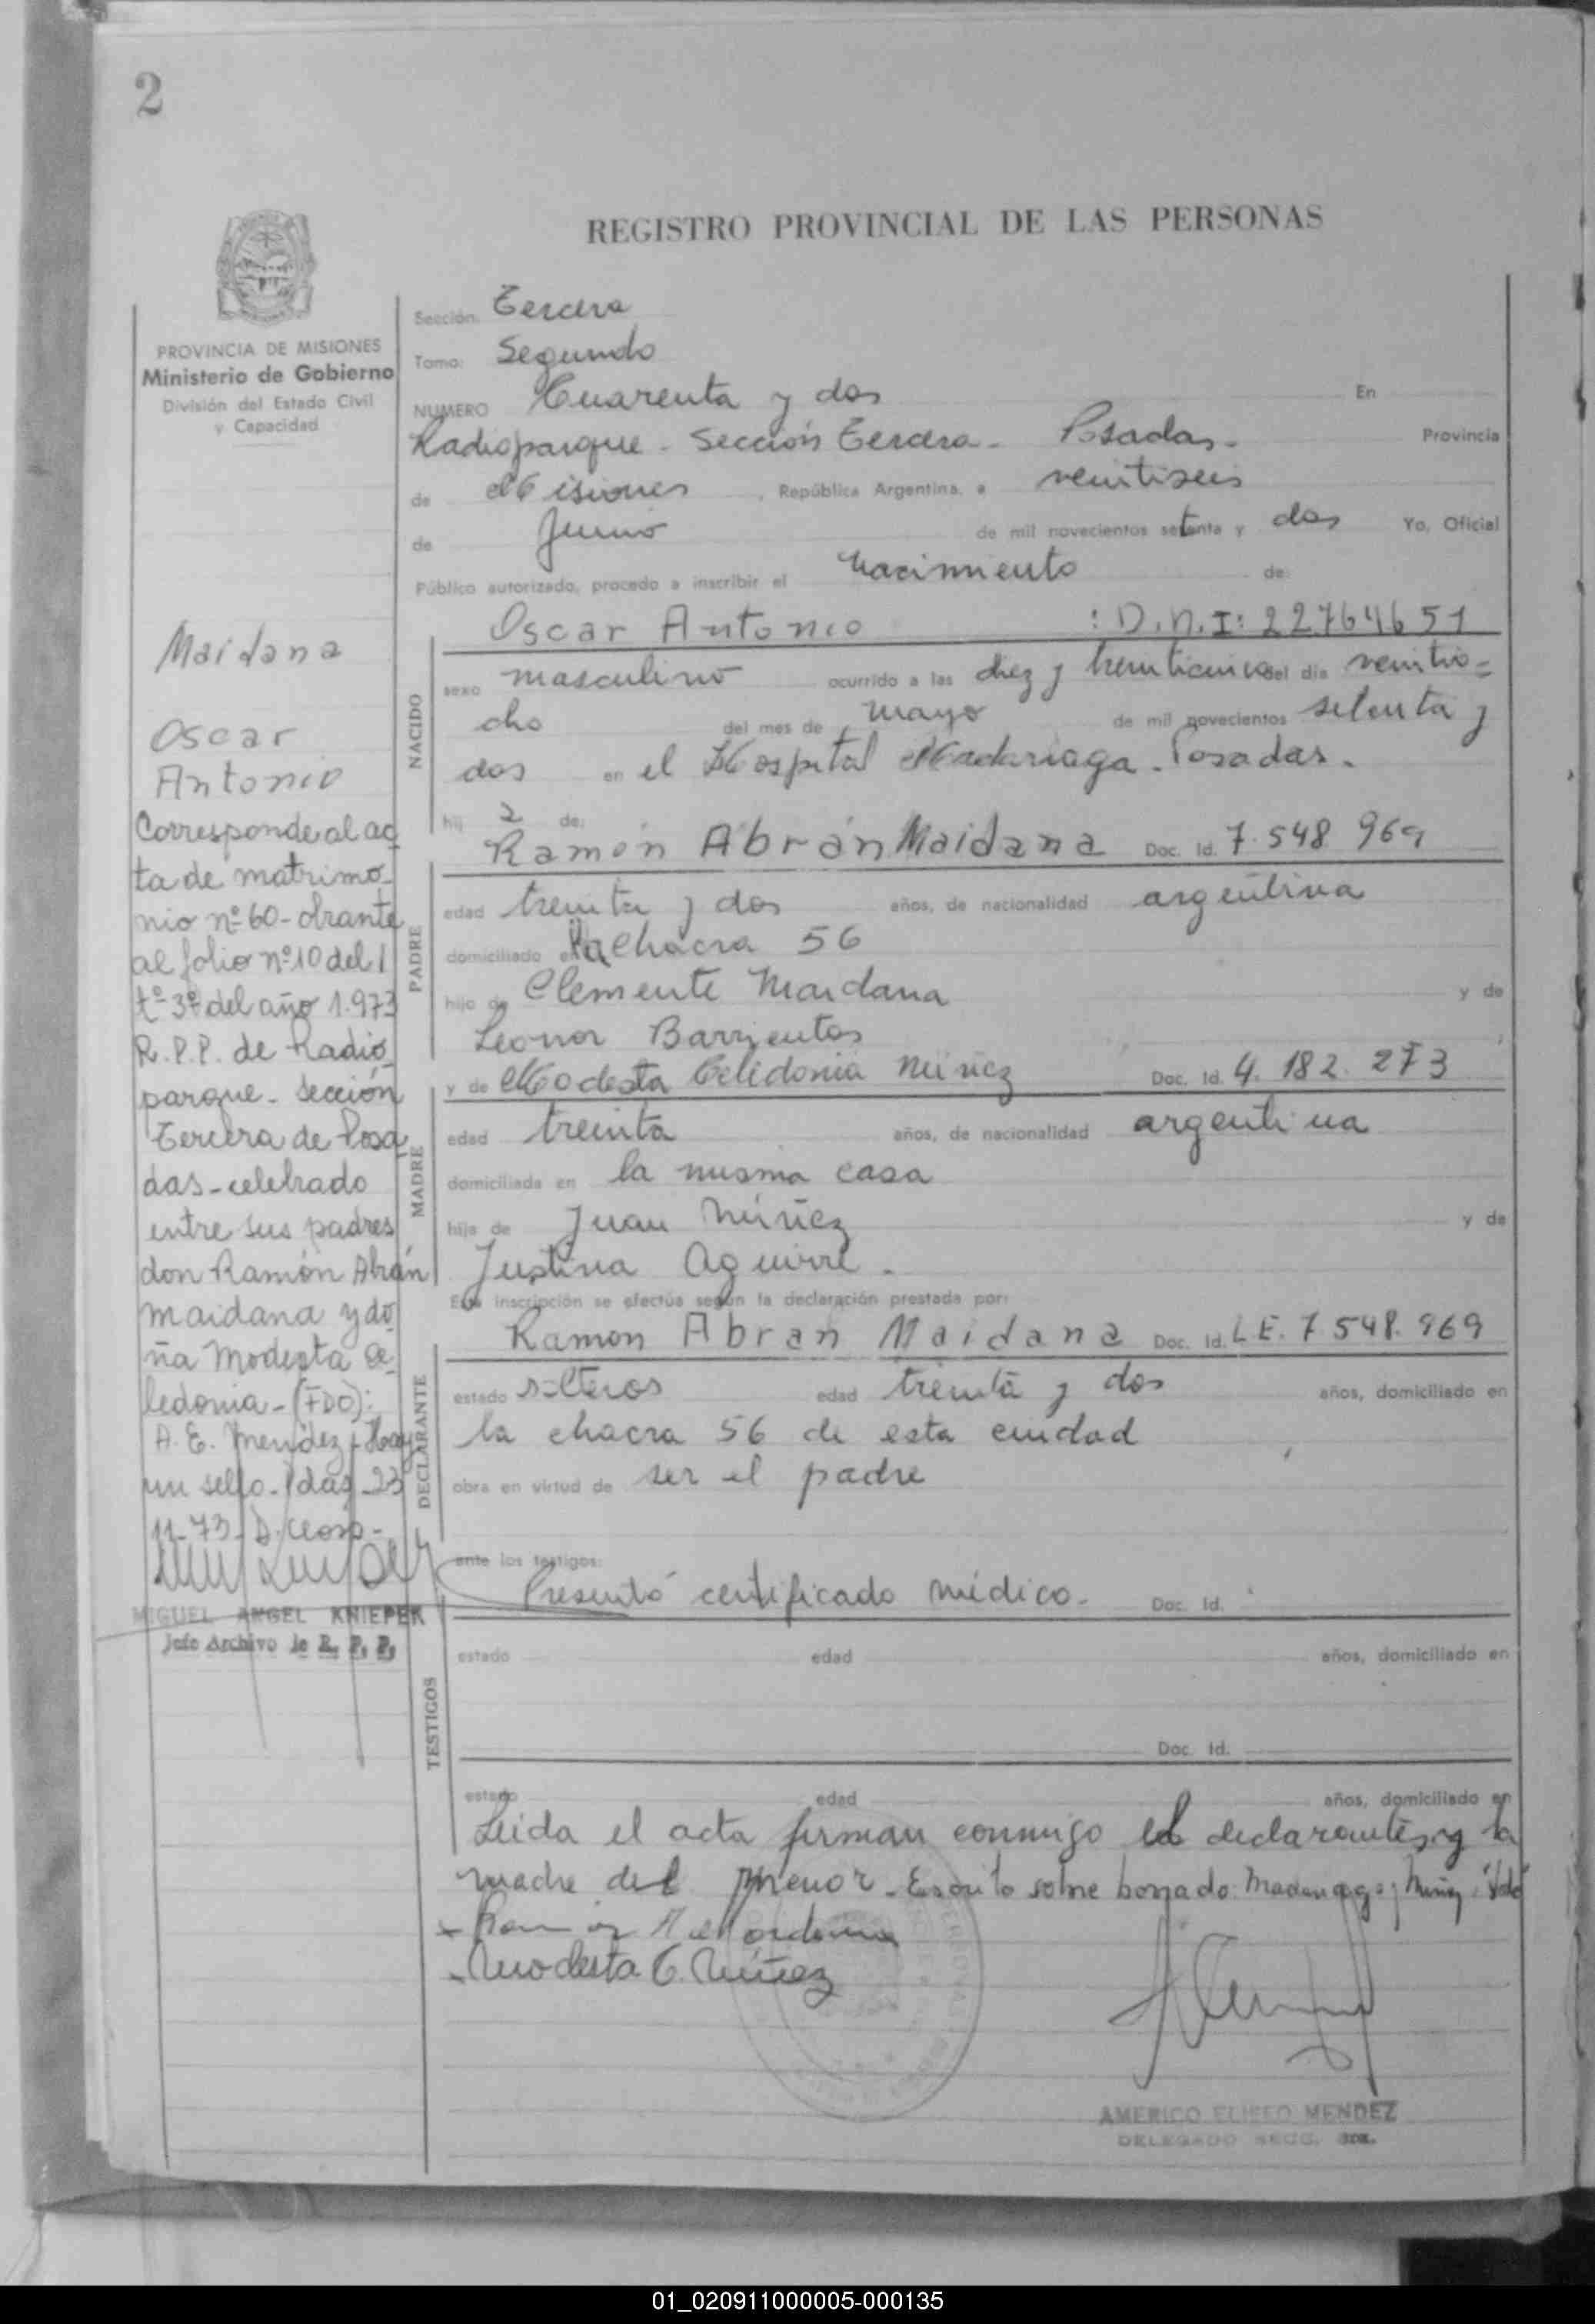 2
REGISTRO PROVINCIAL DE LAS PERSONAS
PROVINCIA DE MISIONES
Ministerio de Gobierno
División del Estado Civil
y Capacidad
Maidana
Oscar
Antonio
Corresponde al ac
ta de matrimo-
nio nº 60 - obrante
al folio nº 10 del
tº 3º del año 1.973
R.P.P. de Radio
parque - Sección
Tercera de Posa
das - celebrado
entre sus padres
don Ramón Abrán
Maidana y do
ña Modesta Ce
ledonia - (FDO):
A. E. Mendez - Hay
un sello - Pdas - 23
11-73 -
MIGUEL ANGEL KNIEPER
Jefe Archivo de R. P. P.
Sección: Tercera
Tomo: Segundo
NUMERO Cuarenta y dos En
Radioparque - Sección Tercera - Posadas - Provincia
de Misiones , República Argentina, a veintiseis
de Junio de mil novecientos setenta y dos Yo, Oficial
Público autorizado, procedo a inscribir el nacimiento de:
Oscar Antonio : D.N.I: 22764651
NACIDO
sexo masculino ocurrido a las diez y treinticinco del día veintio-
cho del mes de mayo de mil novecientos setenta y
dos en el Hospital Madariaga - Posadas -
hij de:
Ramón Abrán Maidana Doc. Id. 7.548 969
PADRE
edad treinta y dos años, de nacionalidad argentina
domiciliado en la chacra 56
hijo de Clemente Maidana y de
Leonor Barrientos
y de Modesta Celedonia Núñez Doc. Id. 4. 182. 273
MADRE
edad treinta años, de nacionalidad argentina
domiciliada en la misma casa
hija de Juan Núñez y de
Justina Aguirre -
Esta inscripción se efectúa según la declaración prestada por:
Ramon Abran Maidana Doc. Id. L E. 7.548. 969
DECLARANTE
estado solteros edad treinta y dos años, domiciliado en
la chacra 56 de esta ciudad
obra en virtud de ser el padre
ante los testigos:
Presentó certificado médico - Doc. Id.
TESTIGOS
estado edad años, domiciliado en
Doc. Id.
estado edad años, domiciliado en
Leida el acta firman conmigo el declarante y la
madre del menor - Escrito sobre borrado: Madariaga y Núñez: Vale
Modesta C. Núñez
AMERICO ELISEO MENDEZ
DELEGADO SECC. 3ra.
01_020911000005-000135